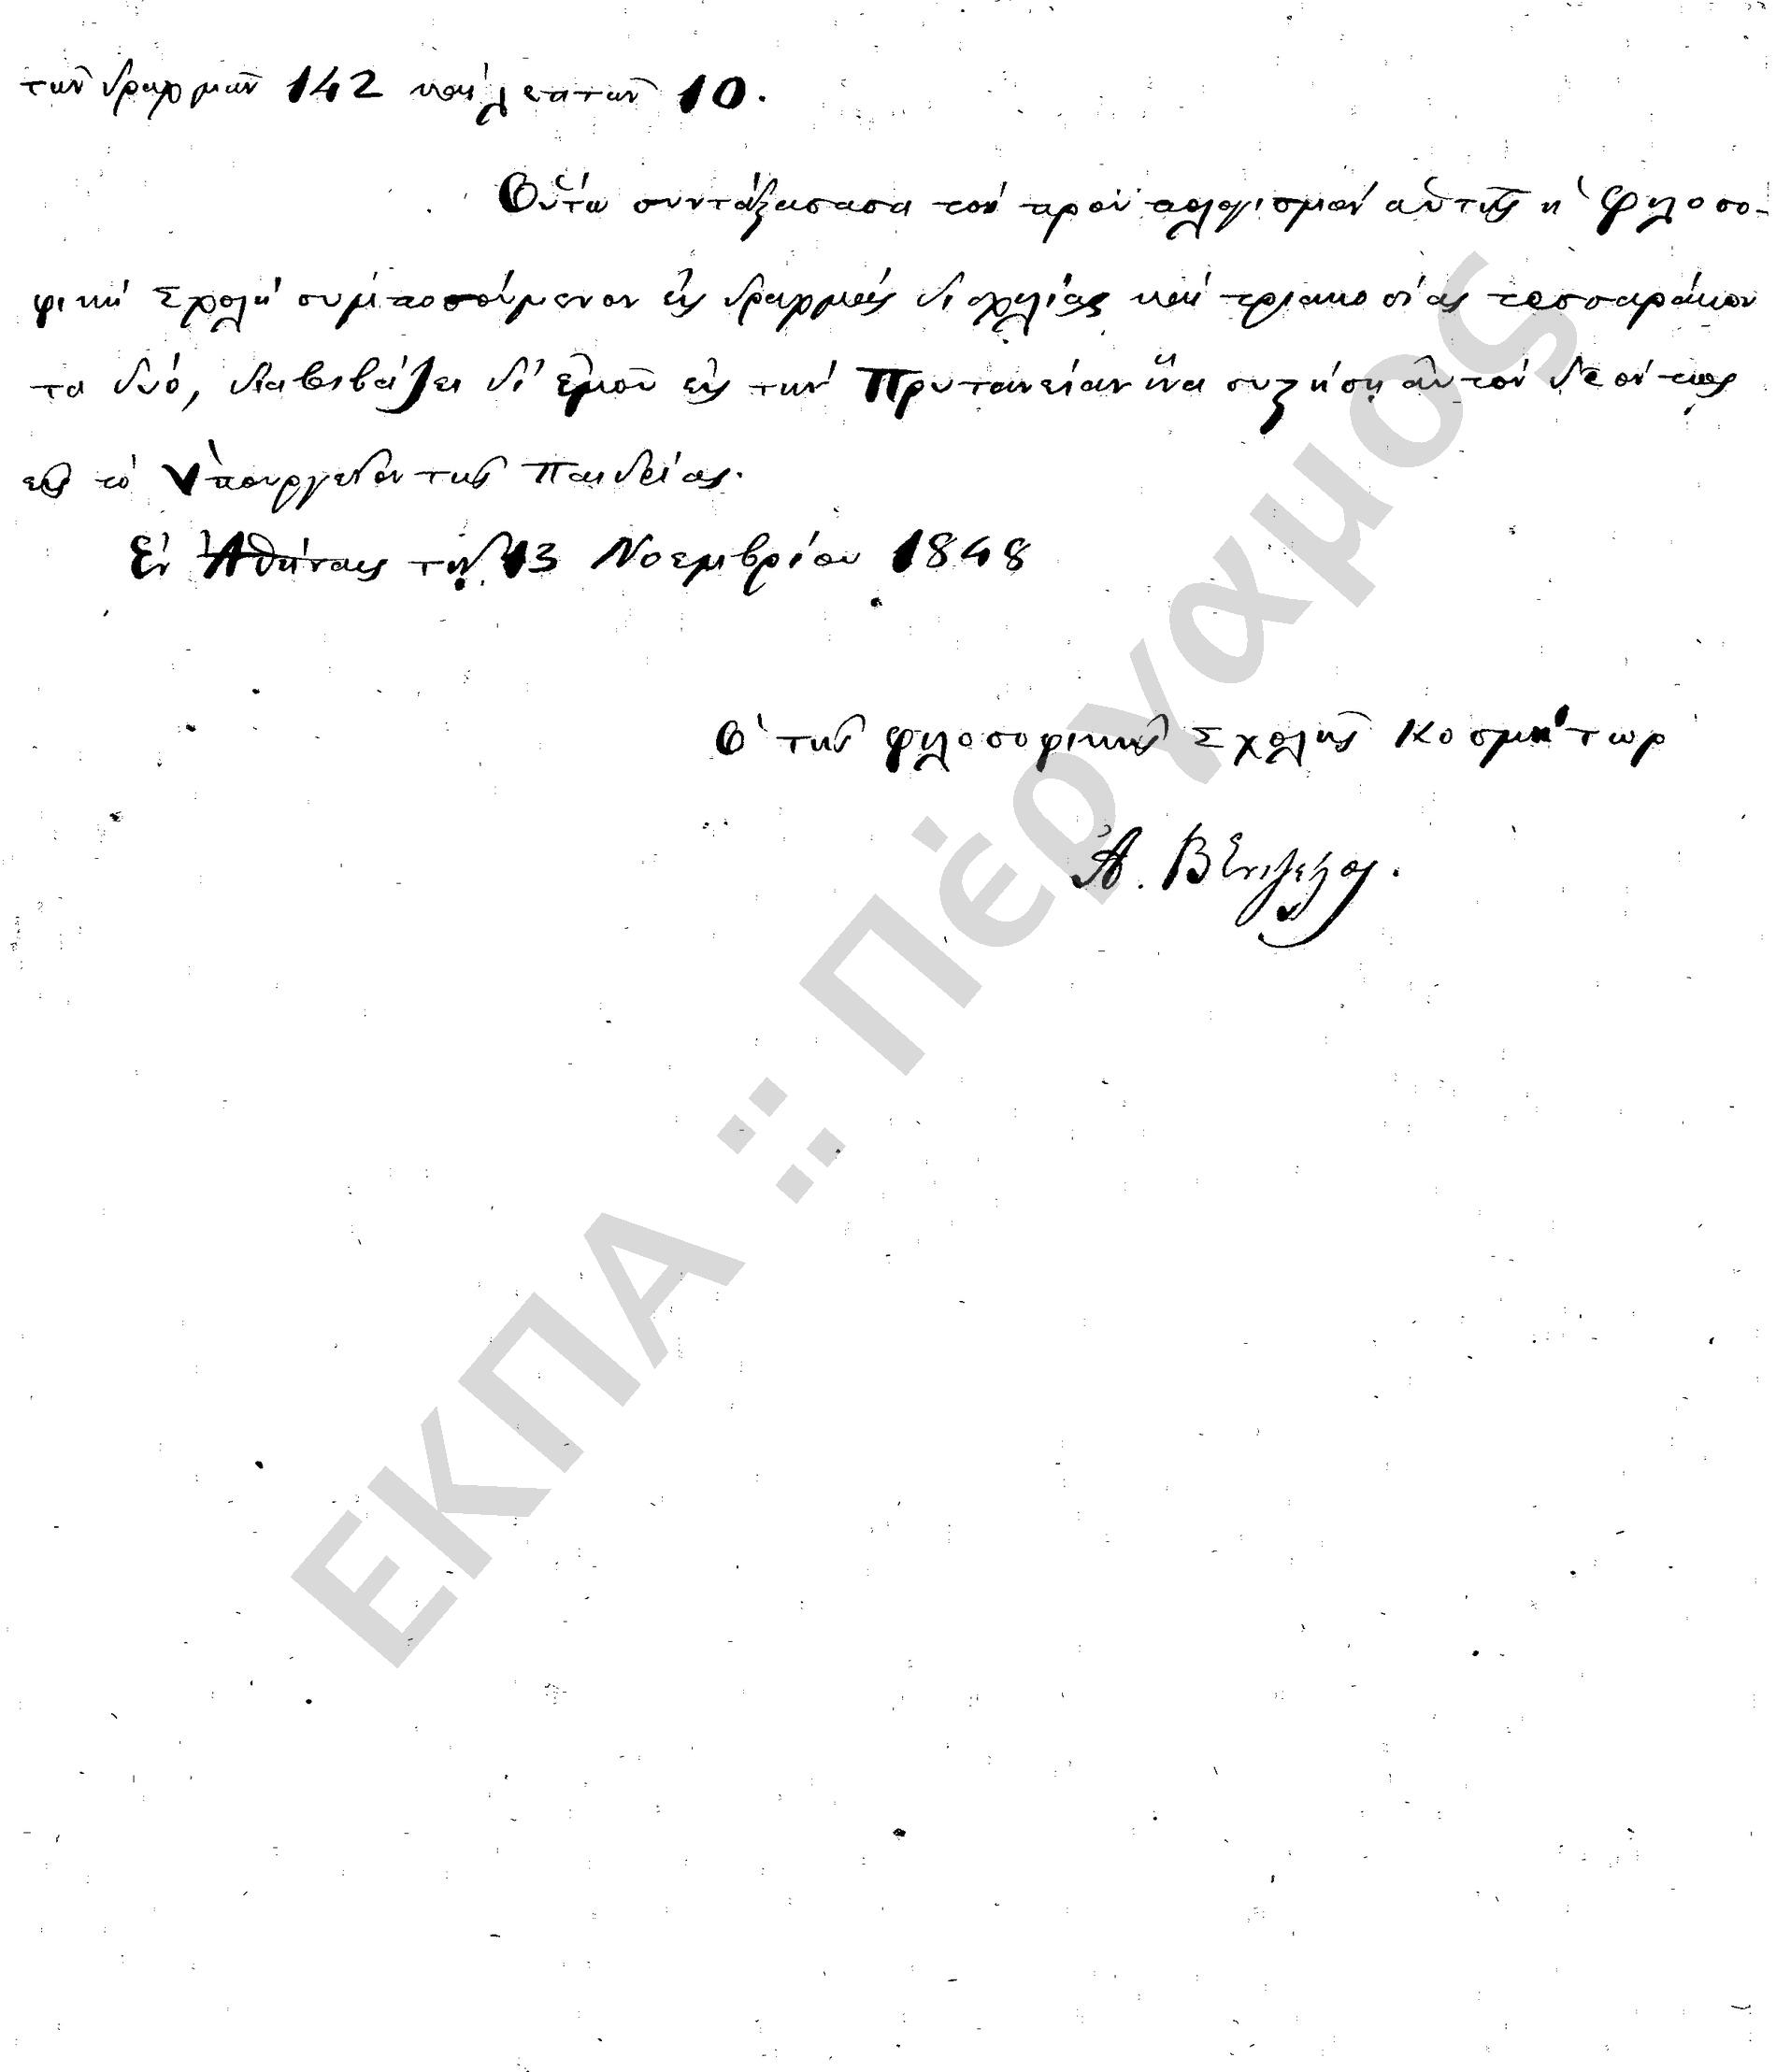 τῶν δραχμῶν 142 καὶ λεπτῶν 10.
Οὕτω συντάξασα τὸν προϋπολογισμὸν αὐτῆς ἡ Φιλοσο-
φικὴ Σχολὴ συμποσούμενον εἰς δραχμὰς δισχιλίας καὶ τριακοσίας τεσσαράκον
τα δύο, διαβιβάζει δι' ἐμοῦ εἰς τὴν Πρυτανείαν ἵνα συστήσῃ αὐτὸν δεόντως
εἰς τὸ Ὑπουργεῖον τῆς Παιδείας.
Ἐν Ἀθήναις τῇ 13 Νοεμβρίου 1848
Ὁ τῆς φιλοσοφικῆς Σχολῆς Κοσμήτωρ
Ἀ. Βενιζέλος.
ΕΚΠΑ :: Πέργαμος